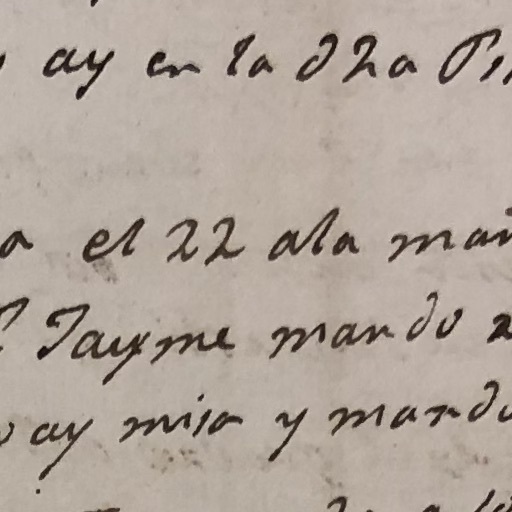 ay en la dha
el 22 ala
Jayme mando
ay misa y mando